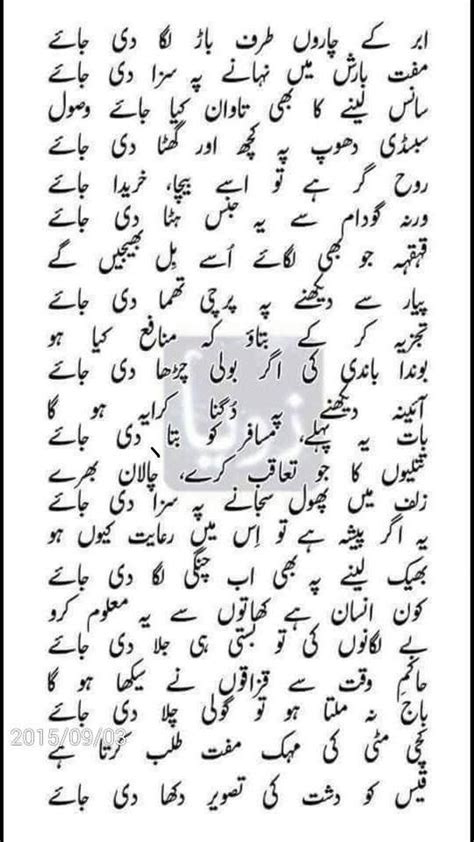 ابر کے چاروں طرف باڑ لگا دی جائے
مفت بارش میں نہانے پہ سزا دی جائے
سانس لینے کا بھی تاوان کیا جائے وصول
سبسڈی دھوپ پہ کچھ اور گھٹا دی جائے
روح گر ہے تو اسے بیچا، خریدا جائے
ورنہ گودام سے یہ جنس ہٹا دی جائے
قہقہہ جو بھی لگائے اُسے بِل بھیجیں گے
پیار سے دیکھنے پہ پرچی تھما دی جائے
تجزیہ کر کے بتاؤ کہ منافع کیا ہو
بوندا باندی کی اگر بولی چڑھا دی جائے
آئینہ دیکھنے پہ دُگنا کرایہ ہو گا
بات یہ پہلے، مسافر کو بتا دی جائے
تتلیوں کا جو تعاقب کرے، چالان بھرے
زلف میں پھول سجانے پہ سزا دی جائے
یہ اگر پیشہ ہے تو اِس میں رعایت کیوں ہو
بھیک لینے پہ بھی اب چنگی لگا دی جائے
کون انسان ہے کھاتوں سے یہ معلوم کرو
بے لگانوں کی تو بستی ہی جلا دی جائے
حاکمِ وقت سے قزاقوں نے سیکھا ہو گا
باج نہ ملتا ہو تو گولی چلا دی جائے
کچی مٹی کی مہک مفت طلب کرتا ہے
قیس کو دشت کی تصویر دکھا دی جائے
زویا
2015/09/03